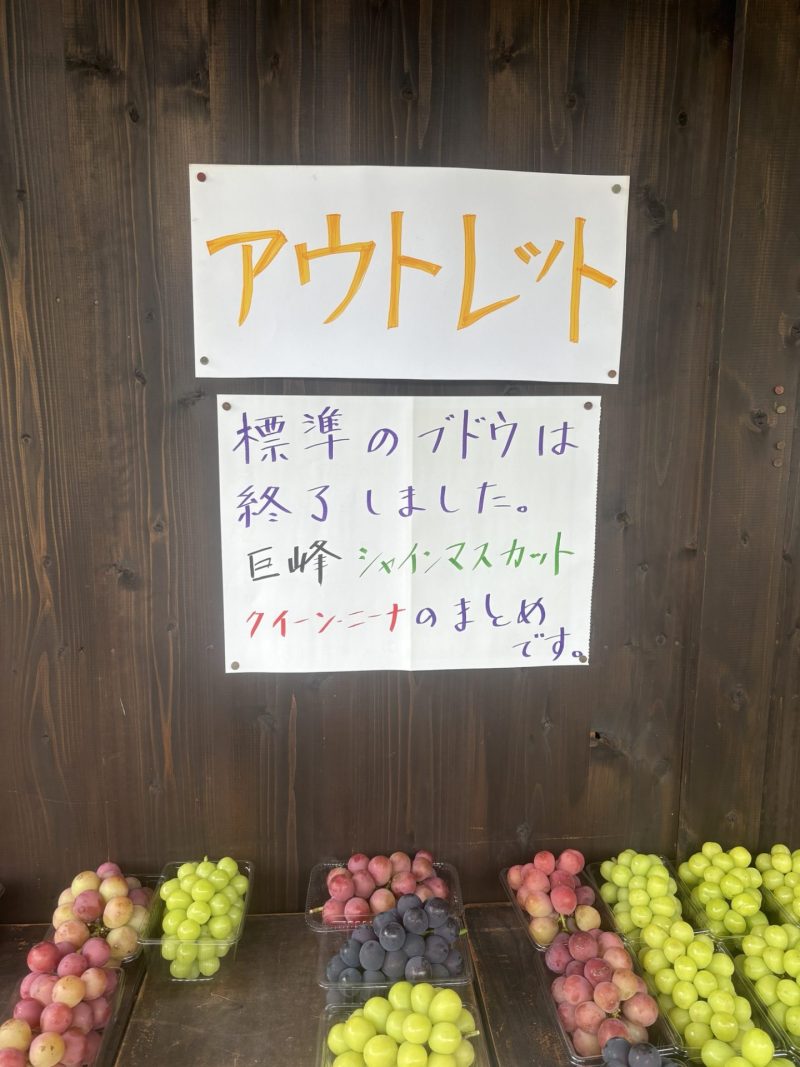 アウトレット
標準のブドウは
終了しました。
巨峰 シャインマスカット
クイーン・ニーナのまとめ
です。